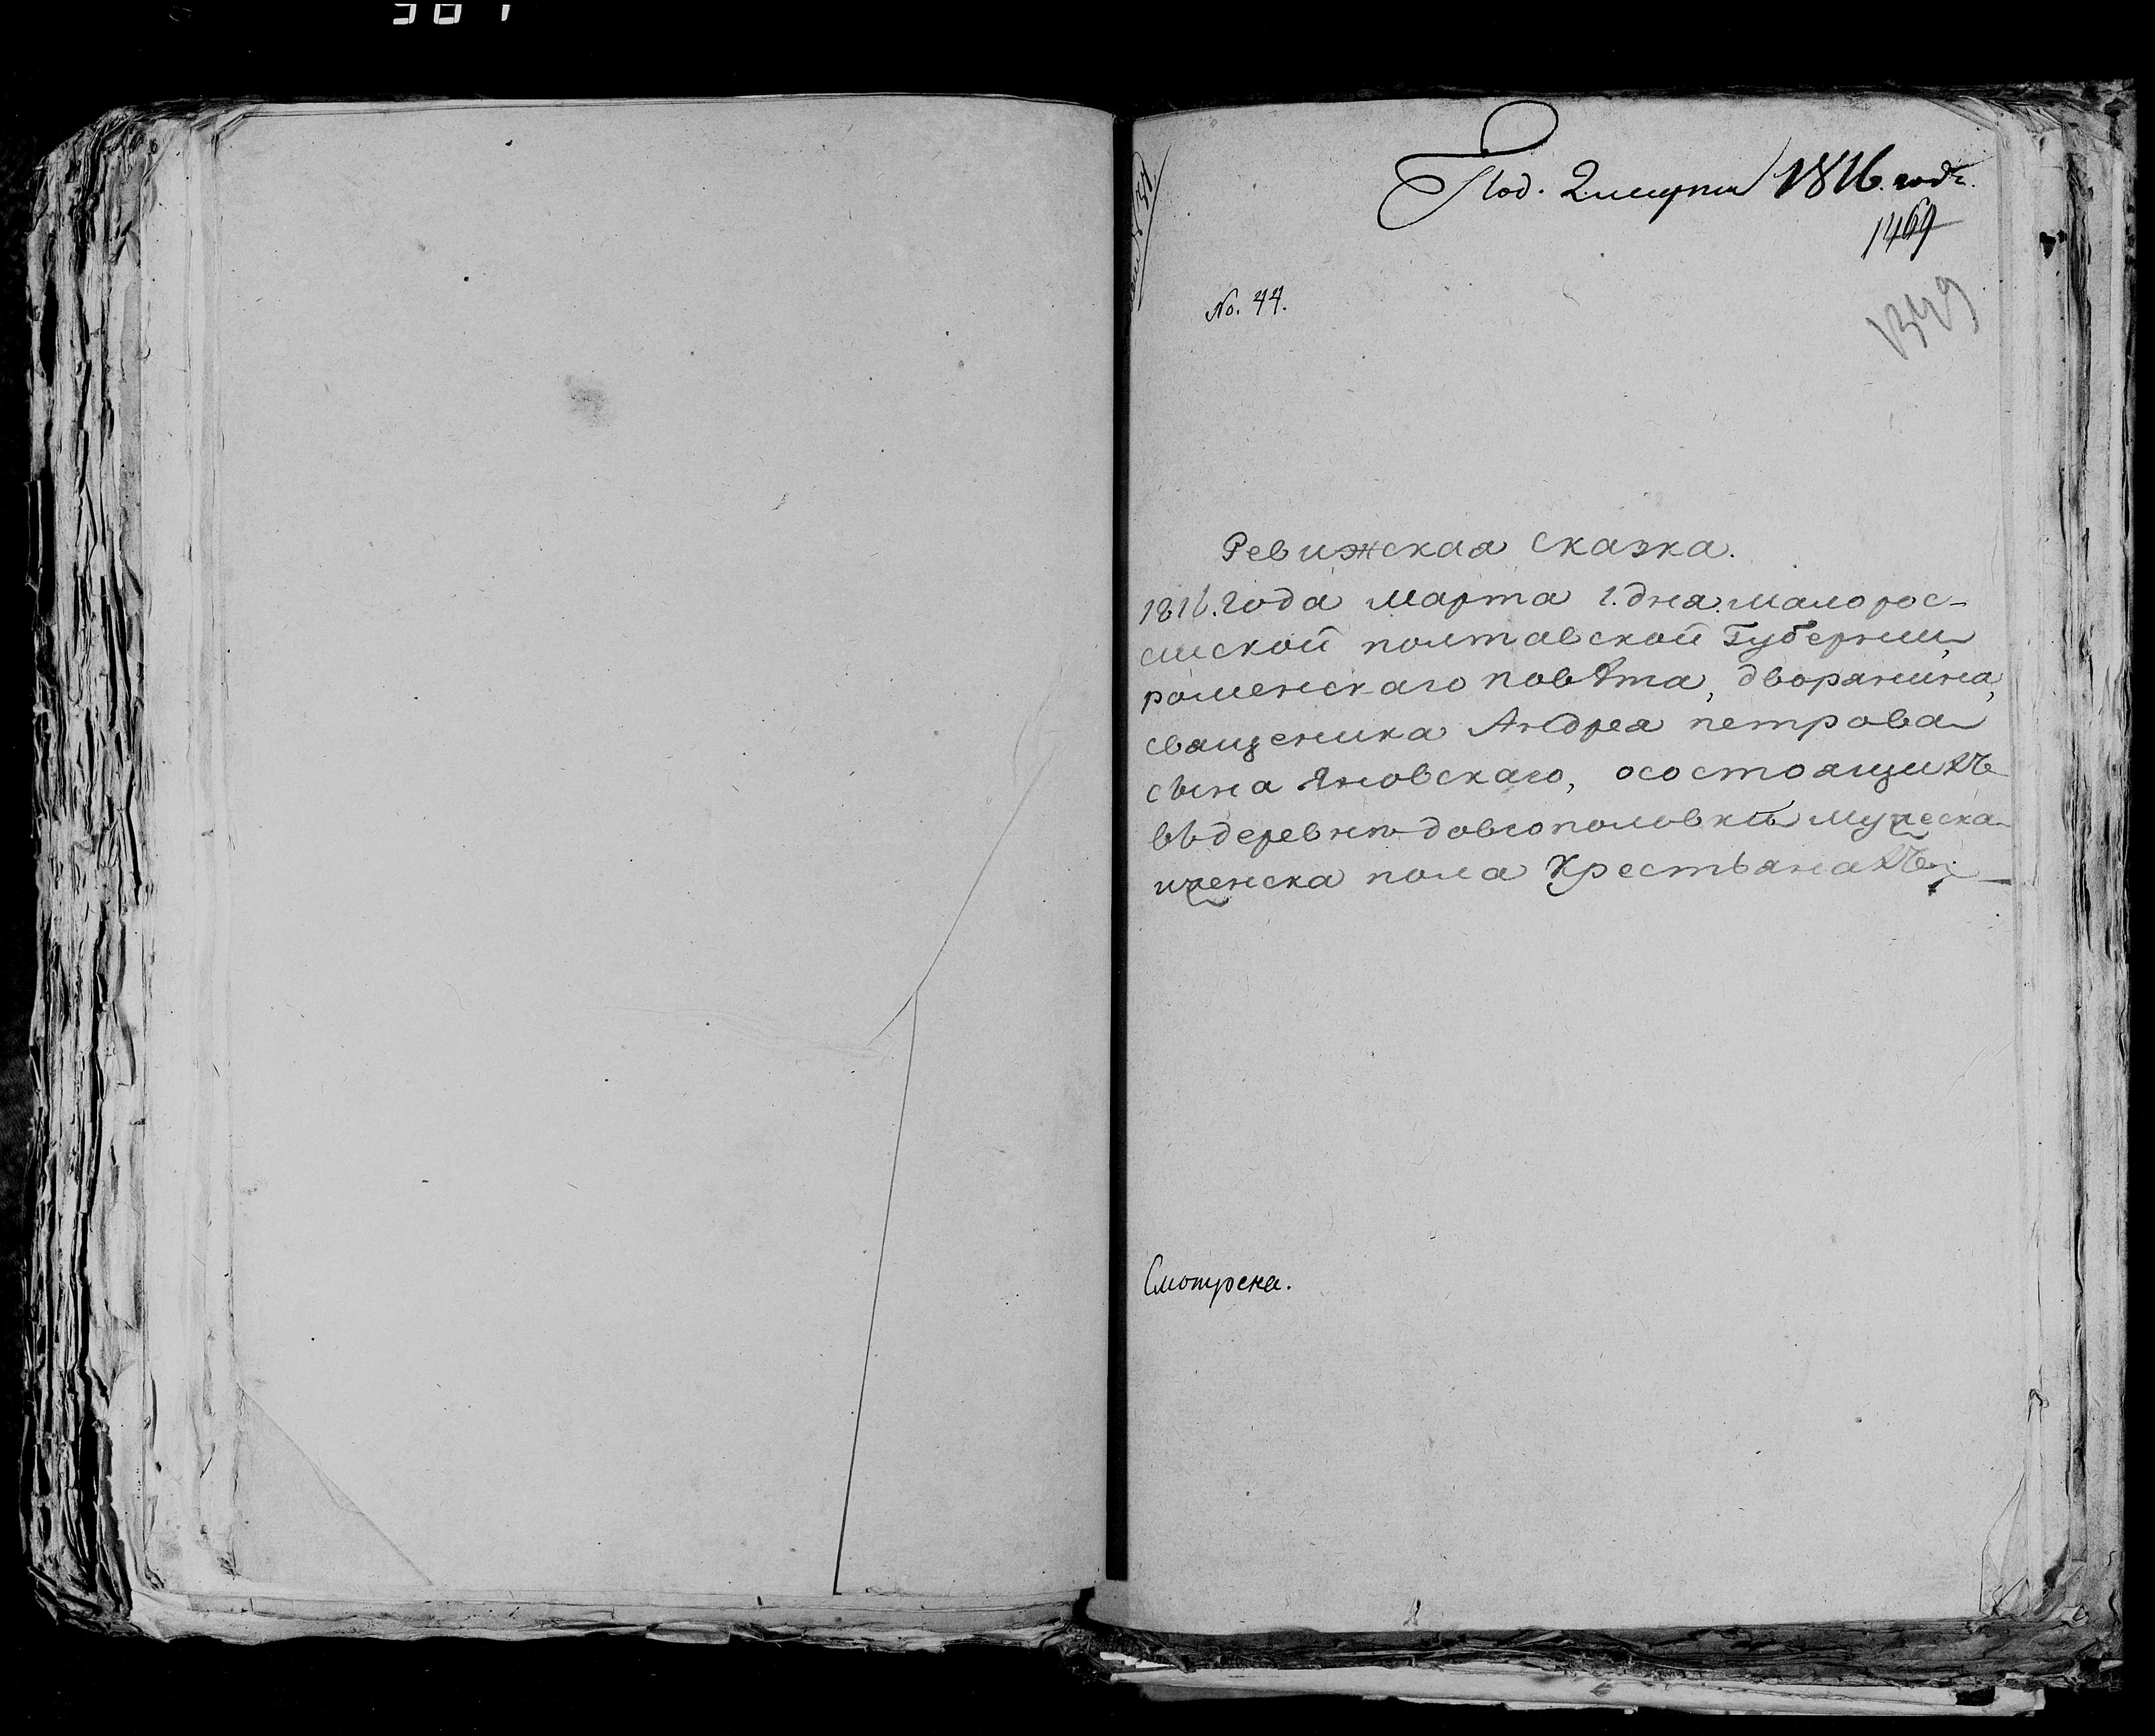 Под. 2 марта 1816. года.
1469
1349
No. 44.
Ревижская сказка.
1816. Года марта 1. дня. малорос-
сиской полтавской Губернии,
роменскаго повѣта, дворянина,
священика Андрея петрова
сына Яновскаго, осостоящихъ
въдеревнѣ довгополовки мужеска
иженска пола Крестьянахъ;
Смотрена.